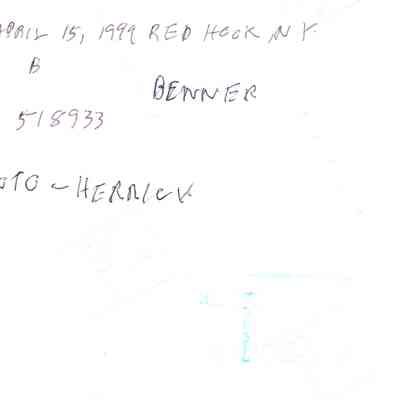 APRIL 15, 1999 RED HOOK N Y.
B
BENNER
518933
OTO - HERRICK